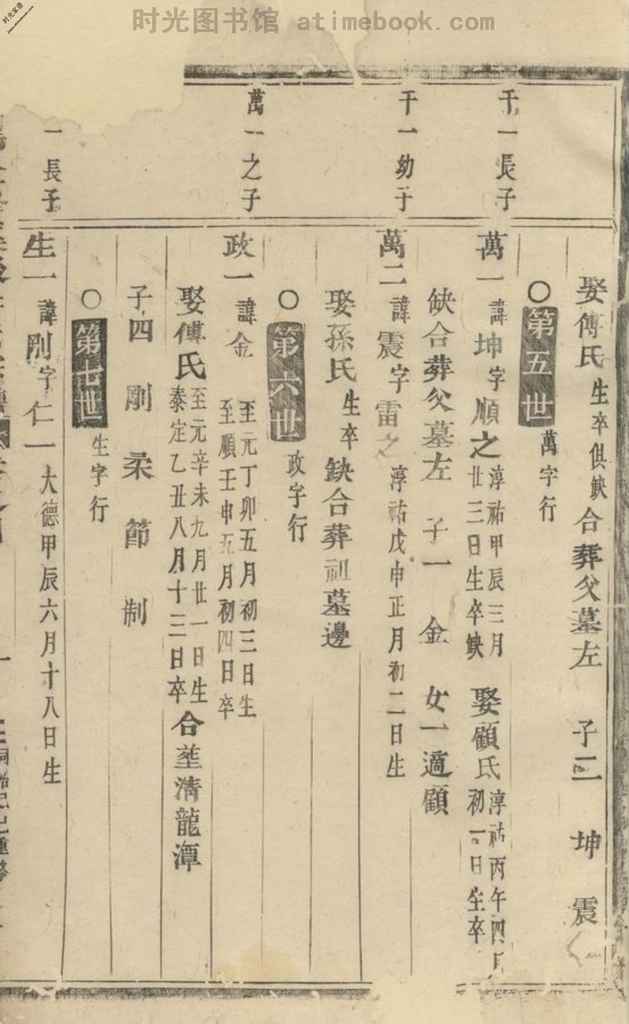 时光图书馆 atimebook.com
时光家谱
娶傅氏生卒俱缺合葬父墓左 子二 坤 震
○第五世萬字行
千一長子
萬一諱坤字順之淳祐甲辰三月
廿三日生卒缺娶顧氏淳祐丙午四月
初一日生卒
缺合葬父墓左 子一 金 女一適顧
千一幼子
萬二諱震字雷之淳祐戊申正月初二日生
娶孫氏生卒缺合葬祖墓邊
○第六世政字行
萬一之子
政一諱金至元丁卯五月初三日生
至順壬申五月初四日卒
娶傅氏至元辛未九月廿一日生
泰定乙丑八月十三日卒合塟清龍潭
子四 剛 柔 節 制
○第七世生字行
一長子
生一諱剛字仁一大德甲辰六月十八日生